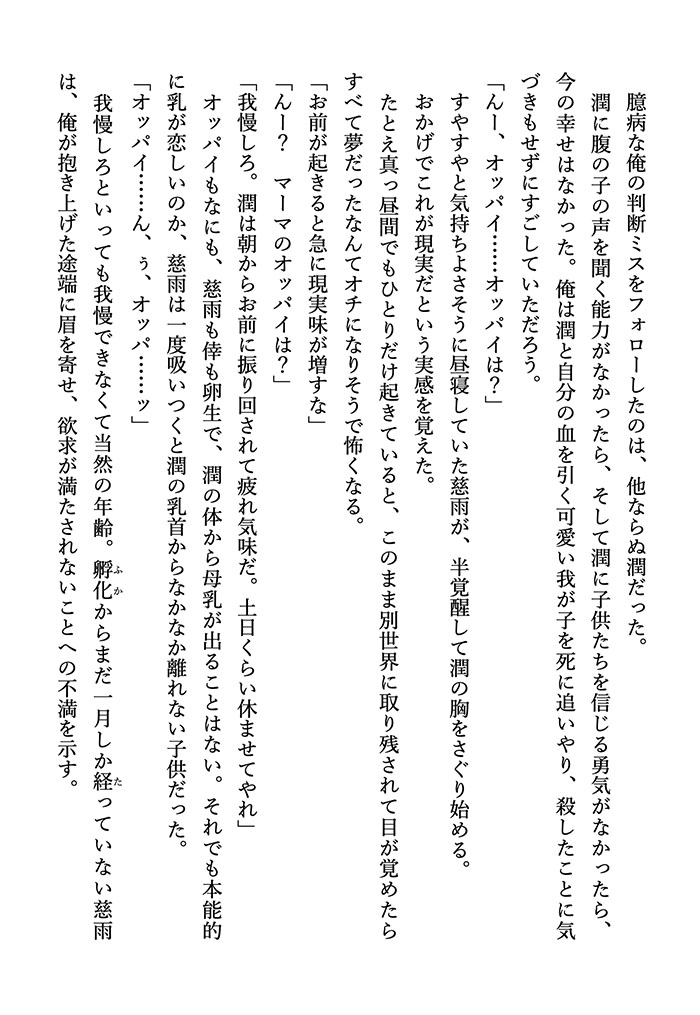 臆病な俺の判断ミスをフォローしたのは、他ならぬ潤だった。
潤に腹の子の声を聞く能力がなかったら、そして潤に子供たちを信じる勇気がなかったら、
今の幸せはなかった。俺は潤と自分の血を引く可愛い我が子を死に追いやり、殺したことに気
づきもせずにすごしていただろう。
「んー、オッパイ……オッパイは？」
すやすやと気持ちよさそうに昼寝していた慈雨が、半覚醒して潤の胸をさぐり始める。
おかげでこれが現実だという実感を覚えた。
たとえ真っ昼間でもひとりだけ起きていると、このまま別世界に取り残されて目が覚めたら
すべて夢だったなんてオチになりそうで怖くなる。
「お前が起きると急に現実味が増すな」
「んー？　マーマのオッパイは？」
「我慢しろ。潤は朝からお前に振り回されて疲れ気味だ。土日くらい休ませてやれ」
オッパイもなにも、慈雨も倖も卵生で、潤の体から母乳が出ることはない。それでも本能的
に乳が恋しいのか、慈雨は一度吸いつくと潤の乳首からなかなか離れない子供だった。
「オッパイ……ん、ぅ、オッパ……ッ」
我慢しろといっても我慢できなくて当然の年齢。孵化ふかからまだ一月しか経たっていない慈雨
は、俺が抱き上げた途端に眉を寄せ、欲求が満たされないことへの不満を示す。